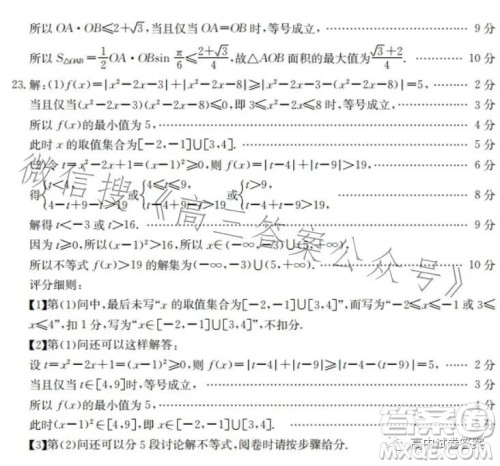 所以 OA·OB≤2+√3,当且仅当 OA=OB 时,等号成立, 9 分
所以 S△OAB=1/2 OA·OBsin π/6≤(2+√3)/4,故△AOB 面积的最大值为(√3+2)/4. 10 分
23.解:(1)f(x)=|x²-2x-3|+|x²-2x-8|≥|x²-2x-3-(x²-2x-8)|=5, 2 分
当且仅当(x²-2x-3)(x²-2x-8)≤0,即 3≤x²-2x≤8 时,等号成立, 3 分
所以 f(x)的最小值为 5, 4 分
此时 x 的取值集合为[-2,-1]∪[3,4]. 5 分
(2)令 t=x²-2x+1=(x-1)²≥0,则 f(x)=|t-4|+|t-9|>19, 6 分
得{t<4, 4-t+9-t>19 或{4≤t≤9, t-4+9-t>19 或{t>9, t-4+t-9>19, 8 分
解得 t<-3 或 t>16. 9 分
因为 t≥0,所以(x-1)²>16,所以 x∈(-∞,-3)∪(5,+∞),
所以不等式 f(x)>19 的解集为(-∞,-3)∪(5,+∞). 10 分
评分细则:
【1】第(1)问中,最后未写“x 的取值集合为[-2,-1]∪[3,4]”,而写为“-2≤x≤-1 或 3≤
x≤4”,扣 1 分,写为“x∈[-2,-1]∪[3,4]”,不扣分.
【2】第(1)问还可以这样解答:
设 t=x²-2x+1=(x-1)²≥0,则 f(x)=|t-4|+|t-9|≥|t-4-(t-9)|=5, 2 分
当且仅当 t∈[4,9]时,等号成立, 3 分
所以 f(x)的最小值为 5,
此时(x-1)²∈[4,9],即 x∈[-2,-1]∪[3,4].
【3】第(2)问还可以分 5 段讨论解不等式,阅卷时请按步骤给分.
微信搜《高三答案公众号》
高中试卷答案